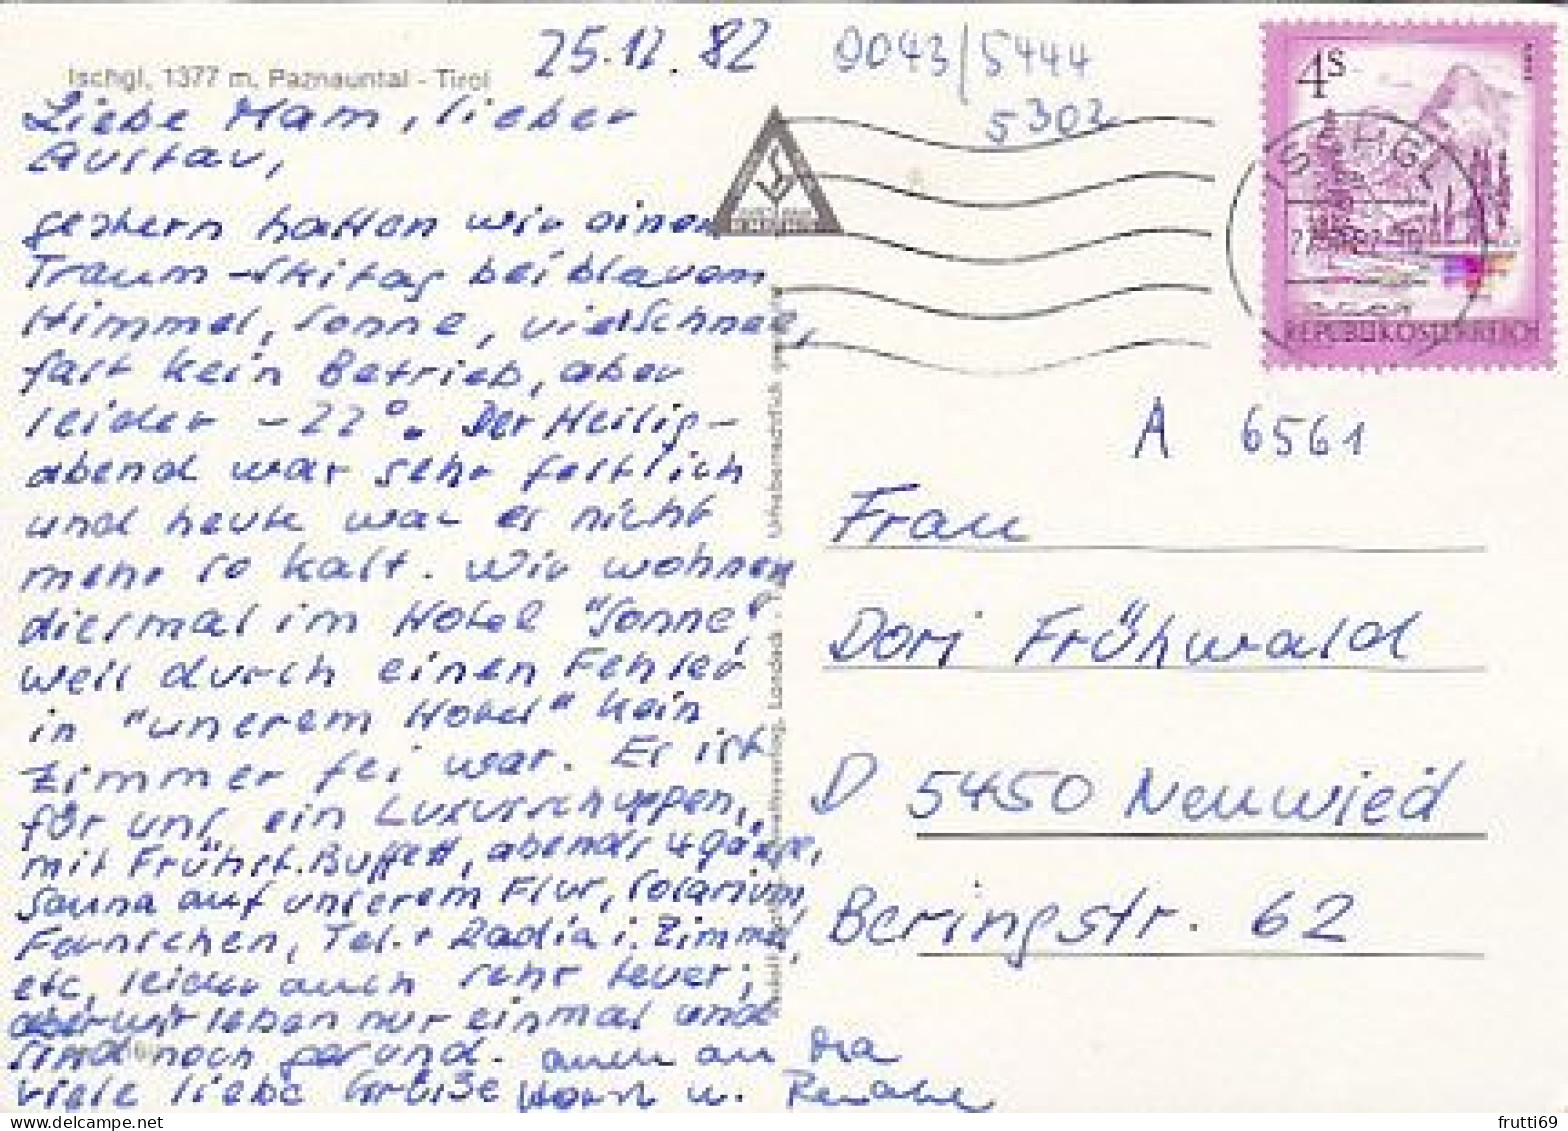 Ischgl, 1377 m, Paznauntal - Tirol
25.12.82
0043/5444
5302
Liebe Mam, lieber
Gustav,
gestern hatten wir einen
Traum-Skitag bei blauem
Himmel, Sonne, viel Schnee,
fast kein Betrieb, aber
leider -22°. Der Heilig-
abend war sehr festlich
und heute war es nicht
mehr so kalt. Wir wohnen
diesmal im Hotel "Sonne",
weil durch einen Fehler
in "unserem Hotel" kein
Zimmer fei war. Es ist
für uns ein Luxusschuppen,
mit Frühst. Buffett, abends 4 Gänge,
Sauna auf unserem Flur, Solarium,
Fernsehen, Tel. + Radio i. Zimmer,
etc, leider auch sehr teuer;
aber wir leben nur einmal und
sind noch gesund. auch an
viele liebe Grüße Horst u. Renate
4S
ISCHGL
REPUBLIK ÖSTERREICH
A 6561
Frau
Dori Frühwald
D 5450 Neuwied
Beringstr. 62
frutti69